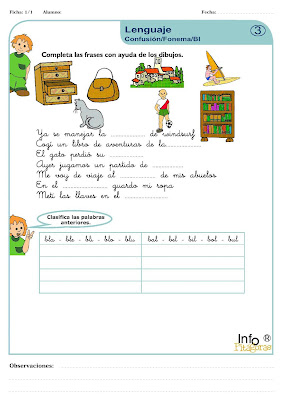 Ficha: 1/1 Alumno: Fecha:
Lenguaje
Confusión/Fonema/Bl
3
Completa las frases con ayuda de los dibujos.
Ya se manejar la ............ de windsurf
Cogí un libro de aventuras de la............
El gato perdió su ............
Ayer jugamos un partido de ............
Me voy de viaje al ............ de mis abuelos
En el ............ guardo mi ropa
Metí las llaves en el ............
Clasifica las palabras
anteriores.
bla - ble - bli - blo - blu bal - bel - bil - bol - bul
Info ®
Pitágoras
Observaciones: